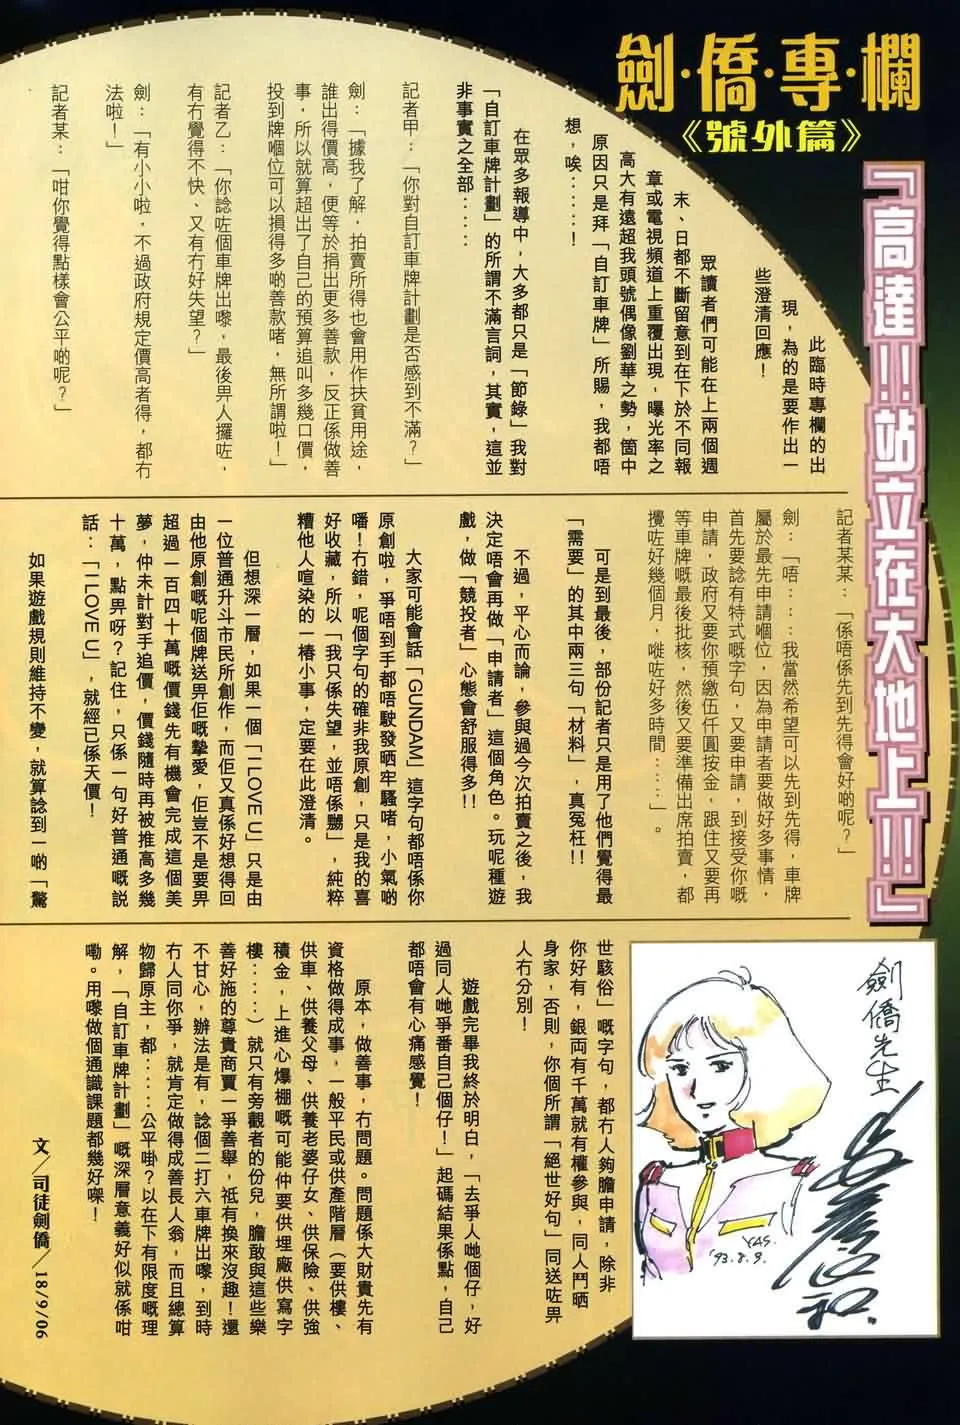 劍·僑·專·欄
《號外篇》
『高達!!站立在大地上!!』
此臨時專欄的出
現，為的是要作出一
些澄清回應！
眾讀者們可能在上兩個週
末、日都不斷留意到在下於不同報
章或電視頻道上重覆出現，曝光率之
高大有遠超我頭號偶像劉華之勢，箇中
原因只是拜「自訂車牌」所賜，我都唔
想，唉⋯⋯！
在眾多報導中，大多都只是「節錄」我對
「自訂車牌計劃」的所謂不滿言詞，其實，這並
非事實之全部⋯⋯
記者甲：「你對自訂車牌計劃是否感到不滿？」
劍：「據我了解，拍賣所得也會用作扶貧用途，
誰出得價高，便等於捐出更多善款，反正係做善
事，所以就算超出了自己的預算追叫多幾口價，
投到牌嗰位可以損得多啲善款啫，無所謂啦！」
記者乙：「你諗咗個車牌出嚟，最後畀人攞咗，
有冇覺得不快、又有冇好失望？」
劍：「有小小啦，不過政府規定價高者得，都冇
法啦！」
記者某：「咁你覺得點樣會公平啲呢？」
記者某某：「係唔係先到先得會好啲呢？」
劍：「唔⋯⋯我當然希望可以先到先得，車牌
屬於最先申請嗰位，因為申請者要做好多事情，
首先要諗有特式嘅字句，又要申請，到接受你嘅
申請，政府又要你預繳伍仟圓按金，跟住又要再
等車牌嘅最後批核，然後又要準備出席拍賣，都
攪咗好幾個月，嘥咗好多時間⋯⋯」。
可是到最後，部份記者只是用了他們覺得最
「需要」的其中兩三句「材料」，真冤枉!!
不過，平心而論，參與過今次拍賣之後，我
決定唔會再做「申請者」這個角色。玩呢種遊
戲，做「競投者」心態會舒服得多!!
大家可能會話「GUNDAM」這字句都唔係你
原創啦，爭唔到手都唔駛發晒牢騷啫，小氣啲
噃！冇錯，呢個字句的確非我原創，只是我的喜
好收藏，所以「我只係失望，並唔係嬲」，純粹
糟他人喧染的一樁小事，定要在此澄清。
但想深一層，如果一個「I LOVE U」只是由
一位普通升斗市民所創作，而佢又真係好想得回
由他原創嘅呢個牌送畀佢嘅摯愛，佢豈不是要畀
超過一百四十萬嘅價錢先有機會完成這個美
夢，仲未計對手追價，價錢隨時再被推高多幾
十萬，點畀呀？記住，只係一句好普通嘅說
話：「I LOVE U」，就經已係天價！
如果遊戲規則維持不變，就算諗到一啲「驚
世駭俗」嘅字句，都冇人夠膽申請，除非
你好有，銀両有千萬就有權參與，同人鬥晒
身家，否則，你個所謂「絕世好句」同送咗畀
人冇分別！
遊戲完畢我終於明白，「去爭人哋個仔，好
過同人哋爭番自己個仔！」起碼結果係點，自己
都唔會有心痛感覺！
原本，做善事，冇問題。問題係大財貴先有
資格做得成事，一般平民或供產階層（要供樓、
供車、供養父母、供養老婆仔女、供保險、供強
積金，上進心爆棚嘅可能仲要供埋廠供寫字
樓⋯⋯）就只有旁觀者的份兒，膽敢與這些樂
善好施的尊貴商賈一爭善舉，祗有換來沒趣！還
不甘心，辦法是有，諗個二打六車牌出嚟，到時
冇人同你爭，就肯定做得成善長人翁，而且總算
物歸原主，都⋯⋯公平啩？以在下有限度嘅理
解，「自訂車牌計劃」嘅深層意義好似就係咁
嘞。用嚟做個通識課題都幾好㗎！
文／司徒劍僑／18/9/06
劍僑先生
YAS.
'93.8.9.